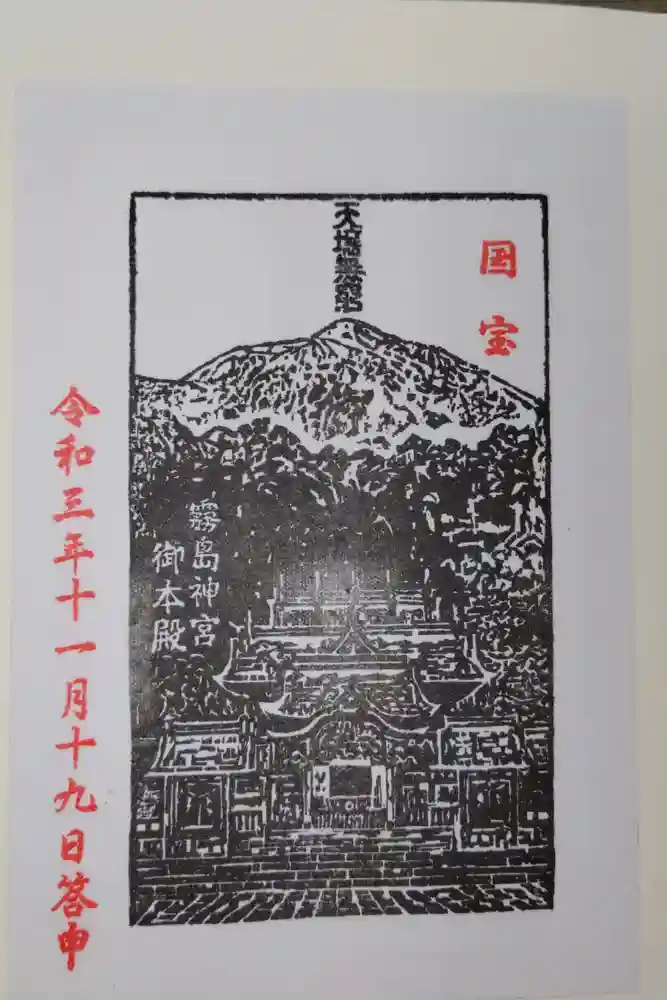 天壌無窮
国宝
霧島神宮
御本殿
令和三年十一月十九日答申